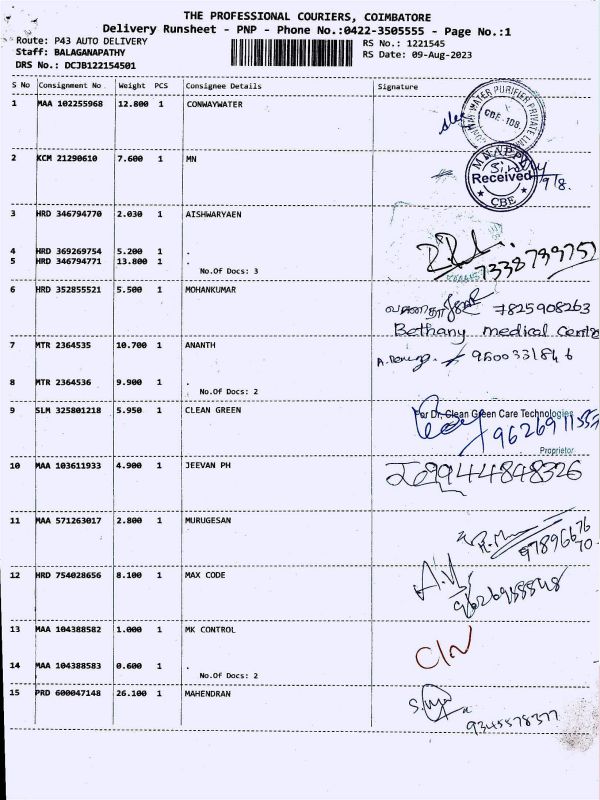 THE PROFESSIONAL COURIERS, COIMBATORE
Delivery Runsheet - PNP - Phone No.:0422-3505555 - Page No.:1
Route: P43 AUTO DELIVERY
RS No.: 1221545
Staff: BALAGANAPATHY
RS Date: 09-Aug-2023
DRS No.: DCJB122154501
S No Consignment No Weight PCS Consignee Details Signature
1 MAA 102255968 12.800 1 CONWAYWATER
WATER PURIFIER PRIVATE
CBE-108.
2 KCM 21290610 7.600 1 MN
Received
9/8.
CBE
3 HRD 346794770 2.030 1 AISHWARYAEN
4 HRD 369269754 5.200 1 .
5 HRD 346794771 13.800 1 .
No.Of Docs: 3
7338739757
6 HRD 352855521 5.500 1 MOHANKUMAR
7825908263
Bethany medical centre
7 MTR 2364535 10.700 1 ANANTH
9600331846
8 MTR 2364536 9.900 1 .
No.Of Docs: 2
9 SLM 325801218 5.950 1 CLEAN GREEN
For Dr. Clean Green Care Technologies
Proprietor
10 MAA 103611933 4.900 1 JEEVAN PH
9944848326
11 MAA 571263017 2.800 1 MURUGESAN
12 HRD 754028656 8.100 1 MAX CODE
13 MAA 104388582 1.000 1 MK CONTROL
14 MAA 104388583 0.600 1 .
No.Of Docs: 2
15 PRD 600047148 26.100 1 MAHENDRAN
9345578377